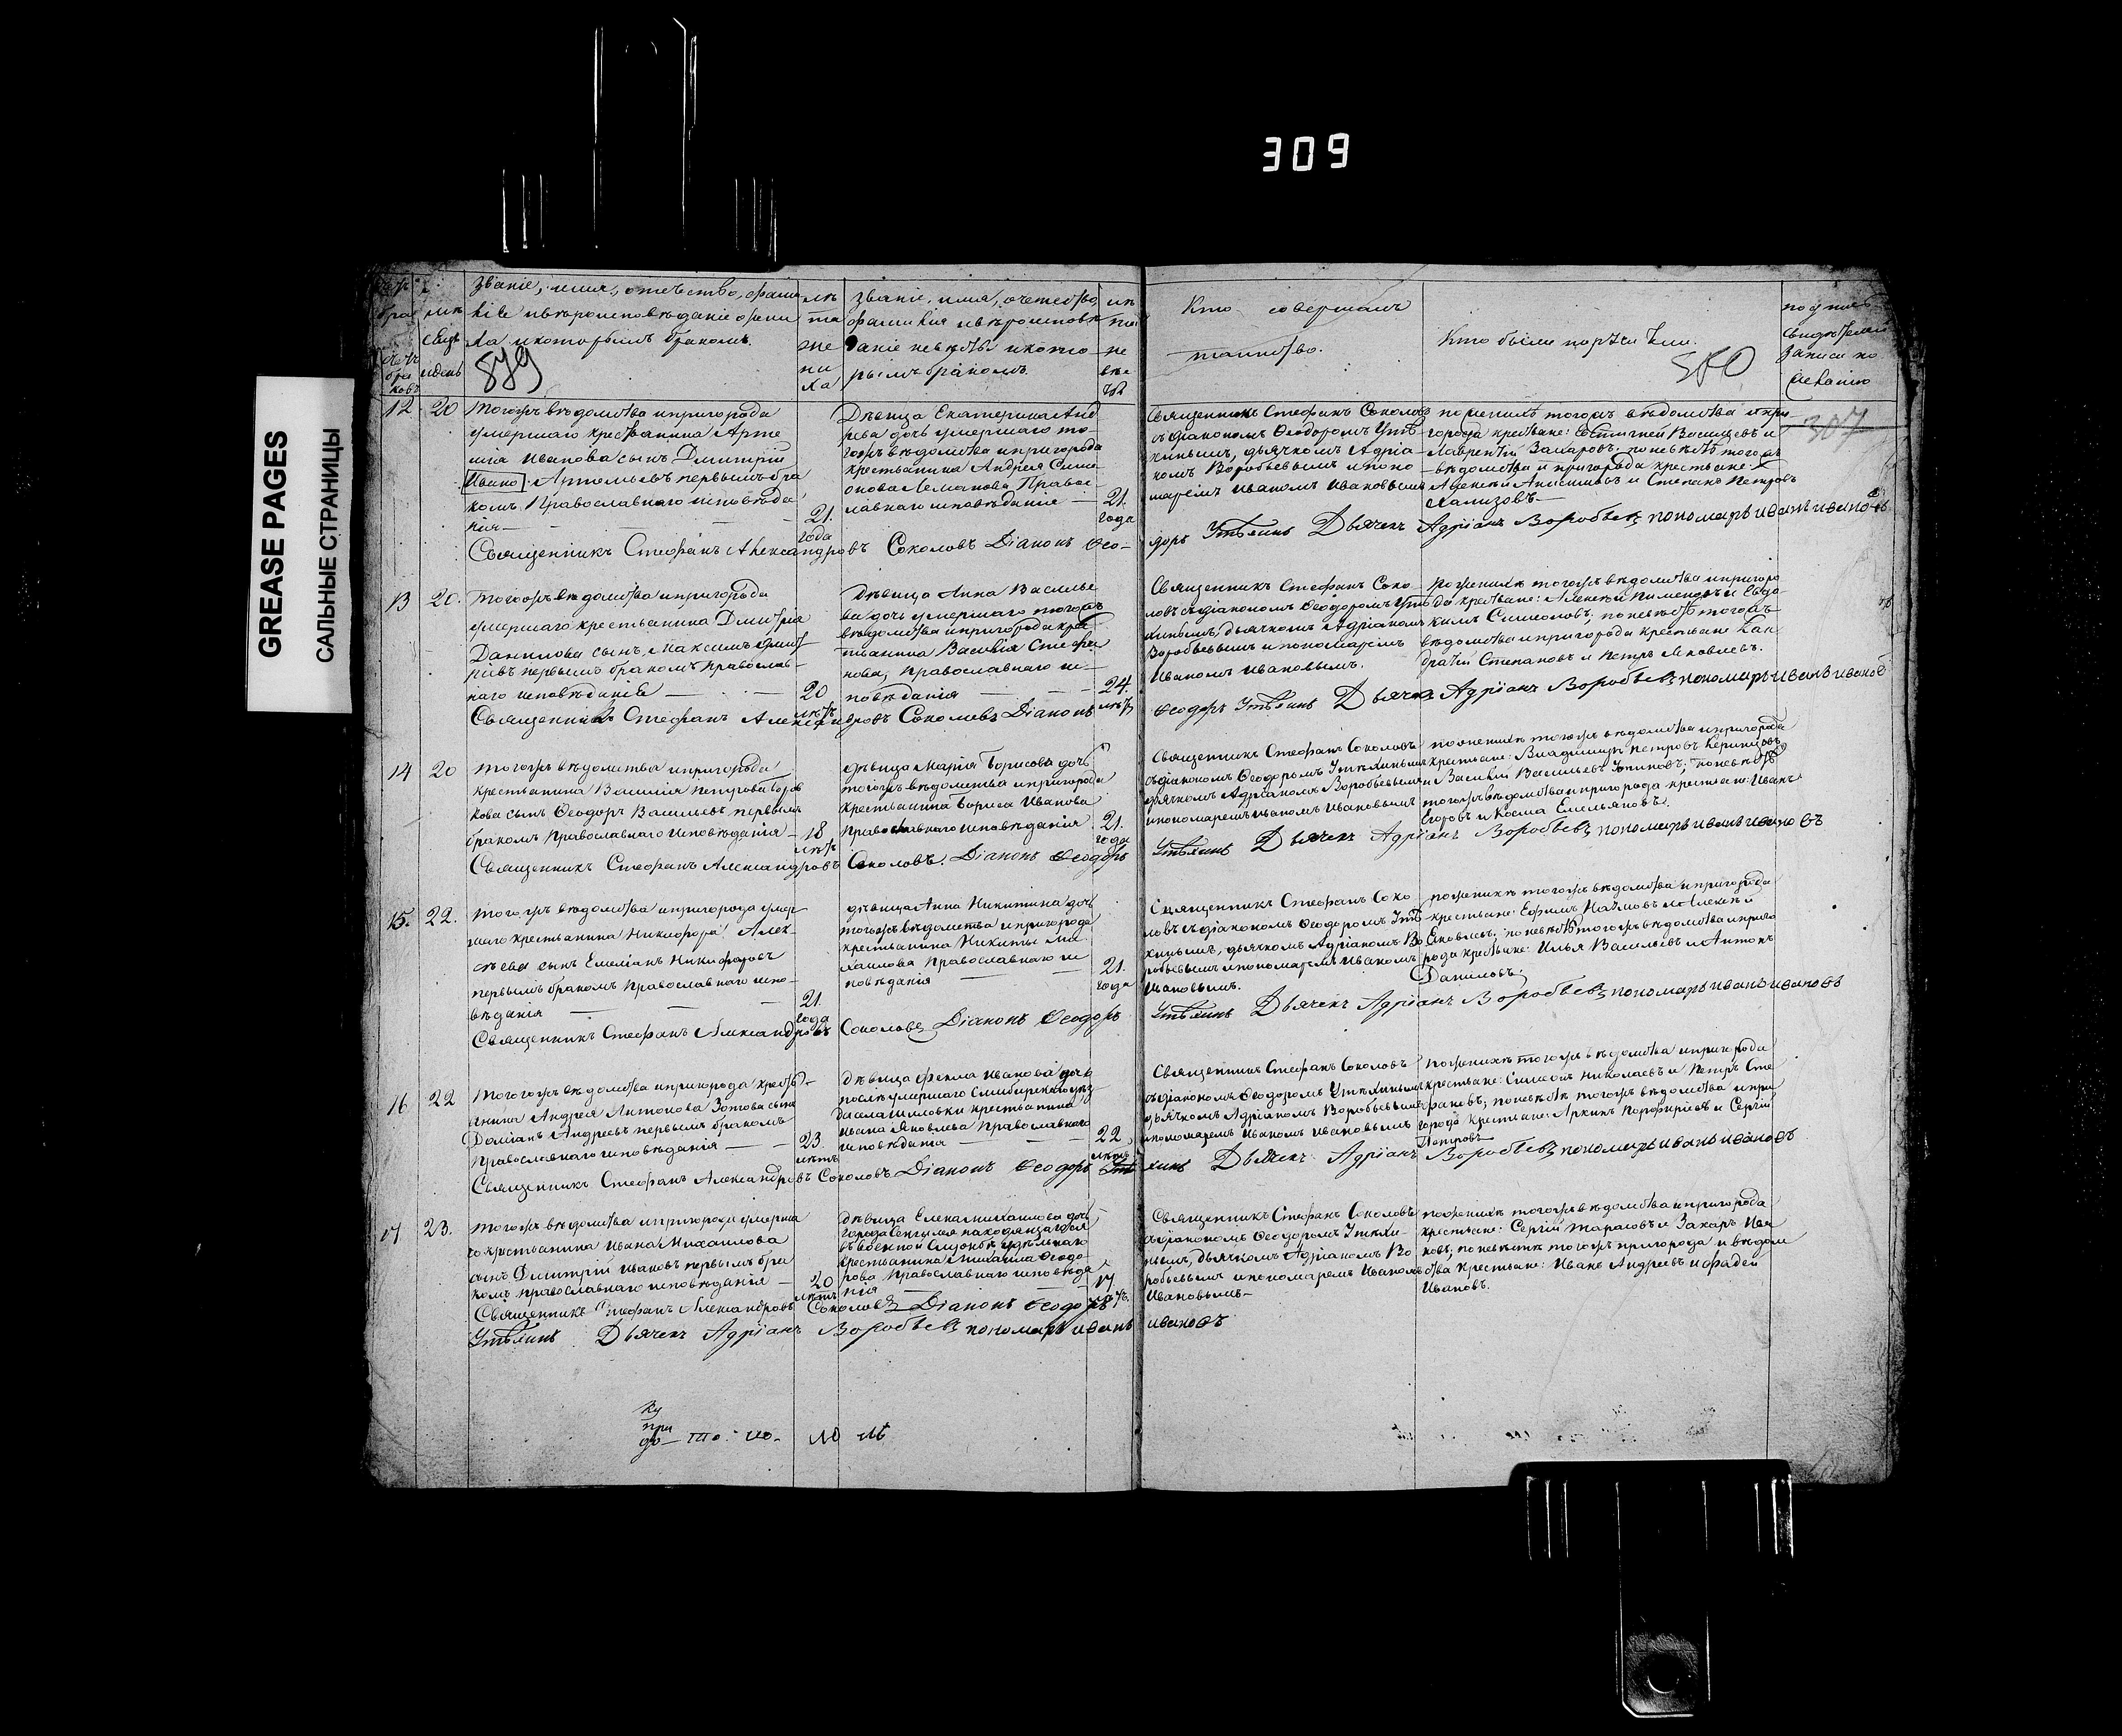 309
GREASE PAGES
САЛЬНЫЕ СТРАНИЦЫ
званіе, имя, отечество, фами
лія и вѣроисповѣданіе жени
ха и которымъ бракомъ.
лѣ
та
же
ни
ха
званіе, имя, отечество,
фамилія и вѣроисповѣ
даніе невѣсты и кото
рымъ бракомъ.
лѣ
та
не
вѣс
ты
Кто совершалъ
таинство.
Кто были поручители.
579
580
307
12 20
Тогожъ вѣдомства и пригорода
умершаго крестьянина Арте
мія Иванова сынъ Димитрій
Артемьевъ первымъ бра
комъ Православнаго исповѣда
нія
21.
года
Дѣвица Екатерина Анд
рева дочь умершаго то
гожъ вѣдомства и пригорода
крестьянина Андрея Симе
онова Право
славнаго исповѣданія
21.
года
Священникъ Стефанъ Соколовъ
съ діакономъ Ѳеодоромъ Утѣ
хинымъ, дьячкомъ Адріа
номъ Воробьевымъ и поно
маремъ Иваномъ Ивановымъ
по женихѣ тогожъ вѣдомства и при
города крестьяне: Васильевъ и
Лаврентій Захаровъ; по невѣстѣ тогожъ
вѣдомства и пригорода крестьяне:
Алексѣй Анисимовъ и Степанъ Петровъ
Священникъ Стефанъ Александровъ Соколовъ Діаконъ Ѳео-
доръ Утѣхинъ Дьячекъ Адріанъ Воробьевъ пономарь иванъ ивановъ
13 20.
Тогожъ вѣдомства и пригорода
умершаго крестьянина Дмитрія
Данилова сынъ Максимъ Дмит
ріевъ первымъ бракомъ Православ
наго исповѣданія
20
лѣтъ
Дѣвица Анна Василье
ва дочь умершаго тогожъ
вѣдомства и пригорода крес
тьянина Василія Стефа
нова, Православнаго ис
повѣданія
24.
лѣтъ
Священникъ Стефанъ Соко
ловъ съ діакономъ Ѳеодоромъ Утѣ
хинымъ, дьячкомъ Адріаномъ
Воробьевымъ и пономаремъ
Иваномъ Ивановымъ.
по женихѣ тогожъ вѣдомства и пригоро
да крестьяне: Алексѣй Пименовъ и Евдо
кимъ Симеоновъ; по невѣстѣ тогожъ
вѣдомства и пригорода крестьяне Кон
дратій Степановъ и Петръ Яковлевъ.
Священникъ Стефанъ Александровъ Соколовъ Діаконъ
Ѳеодоръ Утѣхинъ Дьячекъ Адріанъ Воробьевъ пономарь иванъ иванов
14 20
Тогожъ вѣдомства и пригорода
крестьянина Василія Петрова
сынъ Ѳеодоръ Васильевъ первымъ
бракомъ Православнаго исповѣданія
18
лѣтъ
дѣвица Марія Борисова дочь
тогожъ вѣдомства и пригорода
крестьянина Бориса Иванова
Православнаго исповѣданія
21.
года
Священникъ Стефанъ Соколовъ
съ діакономъ Ѳеодоромъ Утѣхинымъ
дьячкомъ Адріаномъ Воробьевымъ
и пономаремъ Иваномъ Ивановымъ
по женихѣ тогожъ вѣдомства и пригорода
крестьяне: Владимиръ Петровъ
и Василій Васильевъ; по невѣстѣ
тогожъ вѣдомства и пригорода крестьяне: Иванъ
Егоровъ и Косма Емельяновъ.
Священникъ Стефанъ Александровъ Соколовъ. Діаконъ Ѳеодоръ
Утѣхинъ Дьячекъ Адріанъ Воробьевъ пономарь иванъ ивановъ
15. 22.
Тогожъ вѣдомства и пригорода умер
шаго крестьянина Никифора Алек
сѣева сынъ Емеліанъ Никифоровъ
первымъ бракомъ Православнаго испо
вѣданія
21.
года
дѣвица Анна Никитина дочь
тогожъ вѣдомства и пригорода
крестьянина Никиты Ми
хаилова Православнаго ис
повѣданія
21.
года
Священникъ Стефанъ Соко
ловъ съ діакономъ Ѳеодоромъ Утѣ
хинымъ, дьячкомъ Адріаномъ Во
робьевымъ и пономаремъ Иваномъ
Ивановымъ.
по женихѣ тогожъ вѣдомства и пригорода
крестьяне: Ефимъ Наумовъ и Алексѣй
Яковлевъ; по невѣстѣ тогожъ вѣдомства и приго
рода крестьяне: Илья Васильевъ и Антонъ
Даниловъ.
Священникъ Стефанъ Александровъ Соколовъ Діаконъ Ѳеодоръ
Утѣхинъ Дьячекъ Адріанъ Воробьевъ пономарь иванъ ивановъ
16 22
Тогожъ вѣдомства и пригорода кресть
янина Андрея Антонова Зотова сынъ
Даміанъ Андреевъ первымъ бракомъ
Православнаго исповѣданія
23.
лѣтъ
дѣвица Фекла Иванова дочь
послѣ умершаго Симбирскаго уѣз
да крестьянина
Ивана Яковлева Православнаго
исповѣданія
22
лѣтъ
Священникъ Стефанъ Соколовъ
съ діакономъ Ѳеодоромъ Утѣхинымъ
дьячкомъ Адріаномъ Воробьевымъ
и пономаремъ Иваномъ Ивановымъ
по женихѣ тогожъ вѣдомства и пригорода
крестьяне: Симеонъ Николаевъ и Петръ Сте
фановъ; по невѣстѣ тогожъ вѣдомства и при
города крестьяне: Порфирьевъ и Сергій
Петровъ
Священникъ Стефанъ Александровъ Соколовъ Діаконъ Ѳеодоръ Утѣ
хинъ Дьячекъ Адріанъ Воробьевъ пономарь иванъ ивановъ
17 23.
Тогожъ вѣдомства и пригорода умерша
го крестьянина Ивана Михаилова
сынъ Димитрій Ивановъ первымъ бра
комъ православнаго исповѣданія
20
лѣтъ
Дѣвица Елена Михаилова дочь
города Сенгилея находящагося
въ военной службѣ удѣльнаго
крестьянина Михаила Ѳеодо
рова Православнаго исповѣда
нія
17
лѣтъ.
Священникъ Стефанъ Соколовъ
съ діакономъ Ѳеодоромъ Утѣхи
нымъ, дьячкомъ Адріаномъ Во
робьевымъ и пономаремъ Иваномъ
Ивановымъ
по женихѣ тогожъ вѣдомства и пригорода
крестьяне: Сергій Тарасовъ и Захаръ Ива
новъ; по невѣстѣ тогожъ пригорода и вѣдом
ства крестьяне: Иванъ Андреевъ и Фадей
Ивановъ.
Священникъ Стефанъ Александровъ Соколовъ Діаконъ Ѳеодоръ
Утѣхинъ Дьячекъ Адріанъ Воробьевъ пономарь иванъ ивановъ